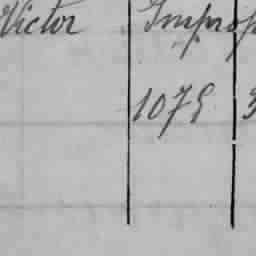 Victor Improp
1078 3